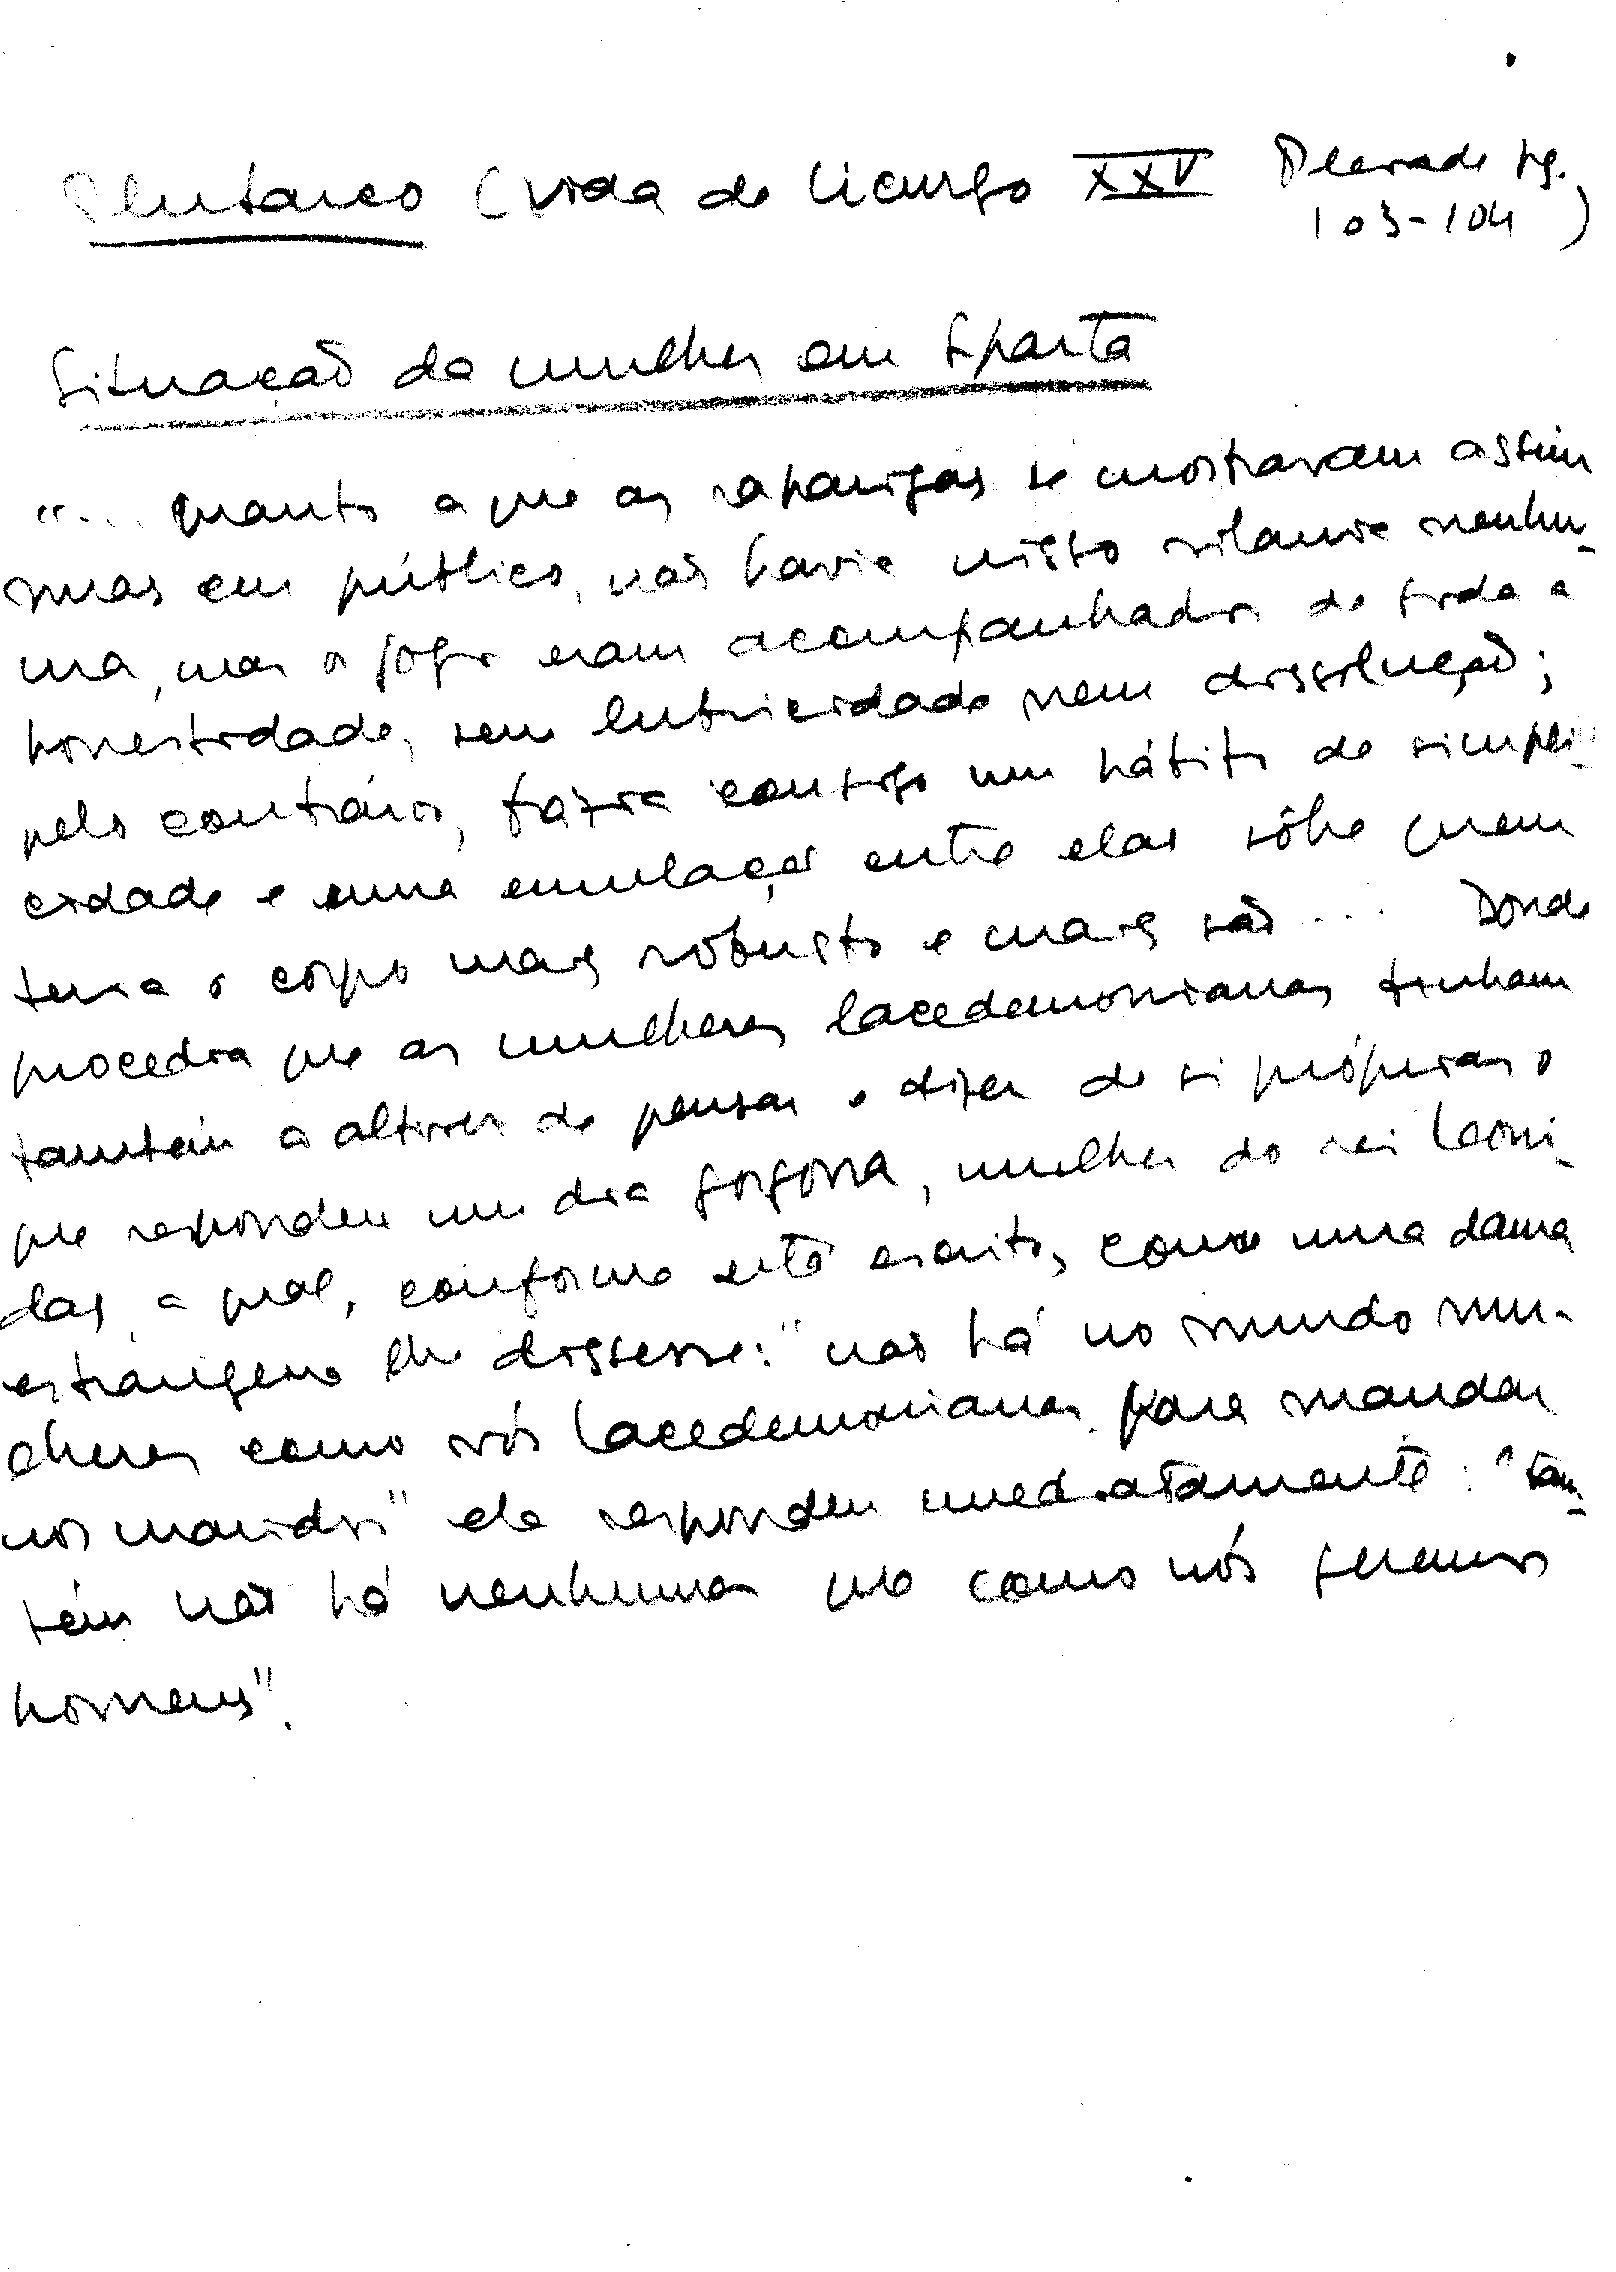 Plutarco (Vida de Licurgo XXV Pleiade pg.
103-104)
Situação da mulher em Sparta
"... quanto a que as raparigas se mostravam assim
nuas em público, não havia nisto vilania nenhu-
ma, mas os jogos eram acompanhados de toda a
honestidade, sem lubricidade nem dissolução;
pelo contrário, trazia consigo um hábito de simpli-
cidade e uma emulação entre elas sôbre quem
teria o corpo mais robusto e mais são ... Donde
procedia que as mulheres lacedemonianas tinham
também a altivez de pensar e dizer de si próprias o
que respondeu um dia Gorgona, mulher do rei Leoni-
das, a qual, conforme está escrito, como uma dama
estrangeira lhe dissesse: "não há no mundo mu-
lheres como vós lacedemonianas para mandar
nos maridos" ela respondeu imediatamente: "tam-
bém não há nenhumas que como nós geremos
homens".